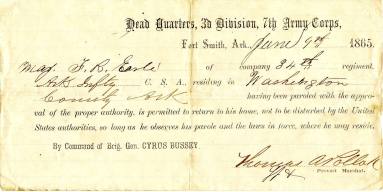 Head Quarters, 3d Division, 7th Army Corps,
Fort Smith, Ark., June 9th 1865.
Maj. F. R. Earle of company 34th regiment.
Ark Infty C. S. A., residing in Washington
County Ark having been paroled with the appro-
val of the proper authority, is permitted to return to his home, not to be disturbed by the United
States authorities, so long as he observes his parole and the laws in force, where he may reside.
By Command of Brig. Gen. CYRUS BUSSEY.
Thomas
Provost Marshal.